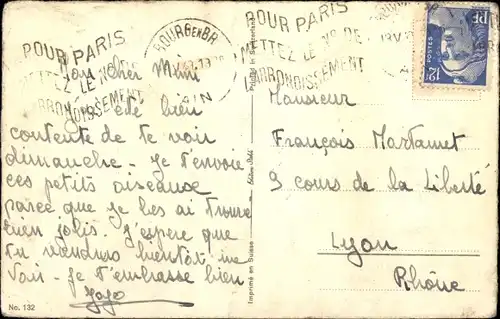 POUR PARIS
METTEZ LE No DE
ARRONDISSEMENT
BOURG EN BR
AIN
POUR PARIS
METTEZ LE No DE
ARRONDISSEMENT
POSTES
RF
12F
Mon cher Mimi
J'ai été bien
contente de te voir
dimanche - Je t'envoie
ces petits oiseaux
parce que je les ai trouvé
bien jolis. J'espère que
tu viendras bientôt me
voir - je t'embrasse bien
Jojo
Monsieur
François Martamet
9 cours de la Liberté
Lyon
Rhône
No. 132
Imprimé en Suisse
Printed in Switzerland